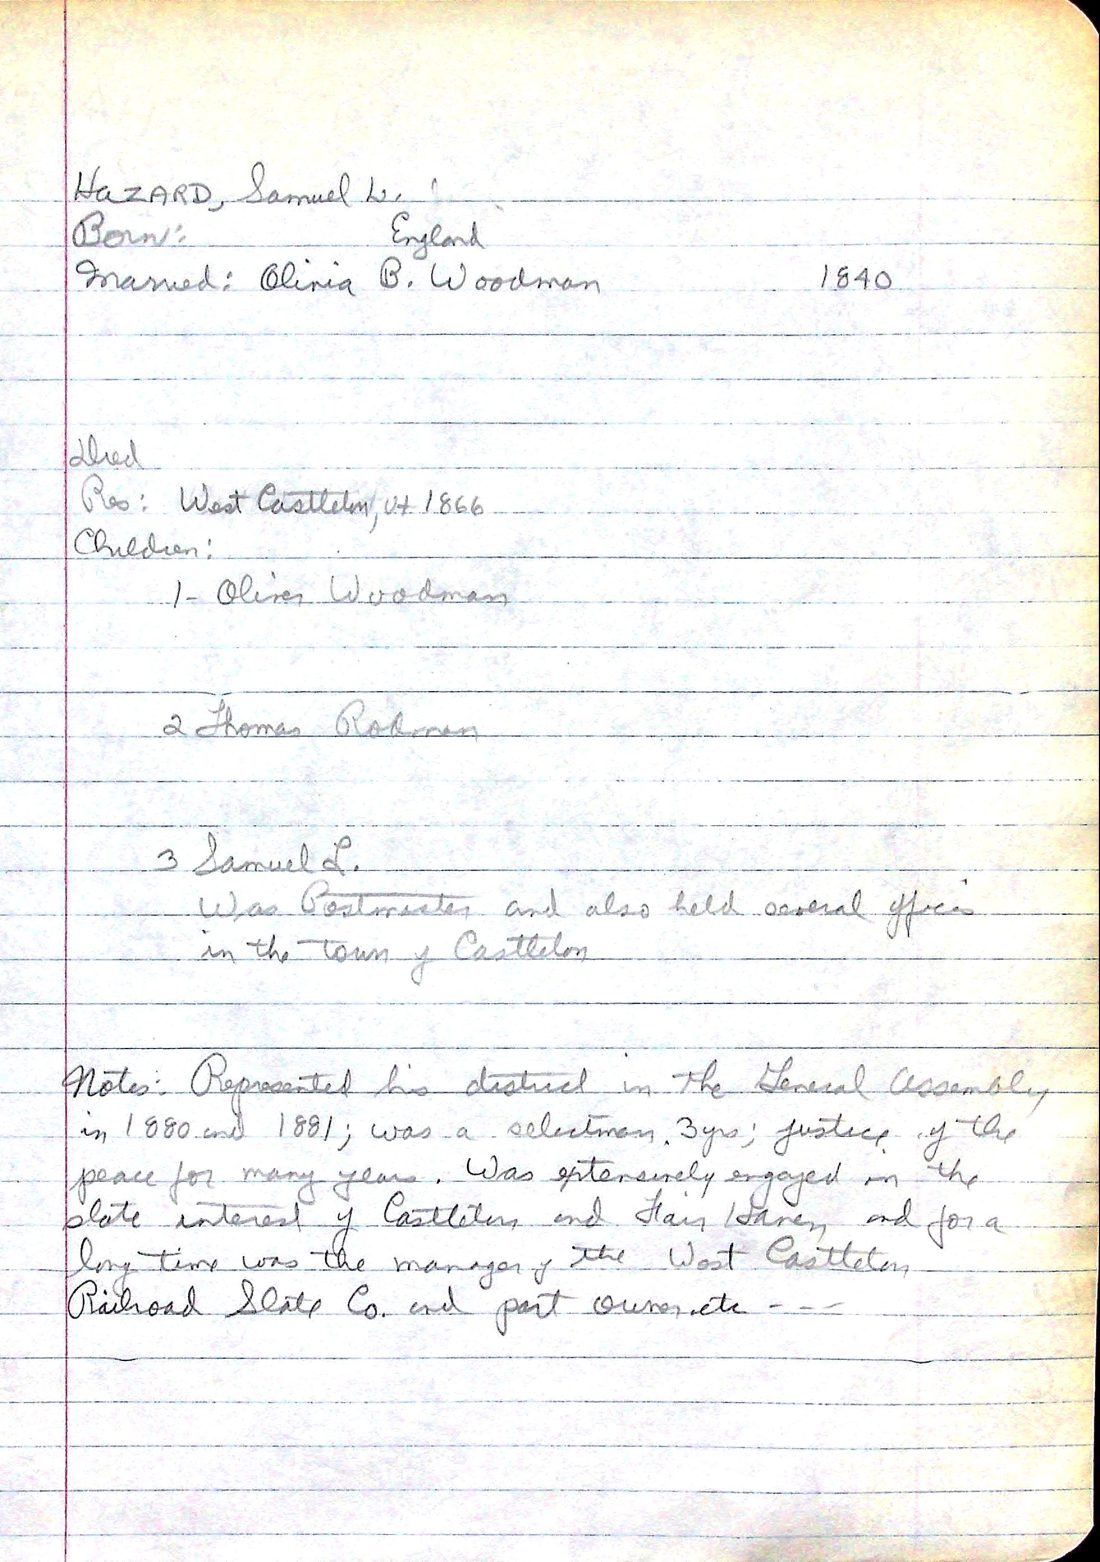 HAZARD, Samuel L.
Born: England
Married: Olivia B. Woodman 1840
Died
Res: West Castleton, Vt 1866
Children:
1- Oliver Woodman
2 Thomas Rodman
3 Samuel L.
Was Postmaster and also held several offices
in the town of Castleton
Notes: Represented his district in the General Assembly
in 1880 and 1881; was a selectman 3 yrs; justice of the
peace for many years. Was extensively engaged in the
slate interest of Castleton and Fair Haven, and for a
long time was the manager of the West Castleton
Railroad Slate Co. and part owner etc - - -